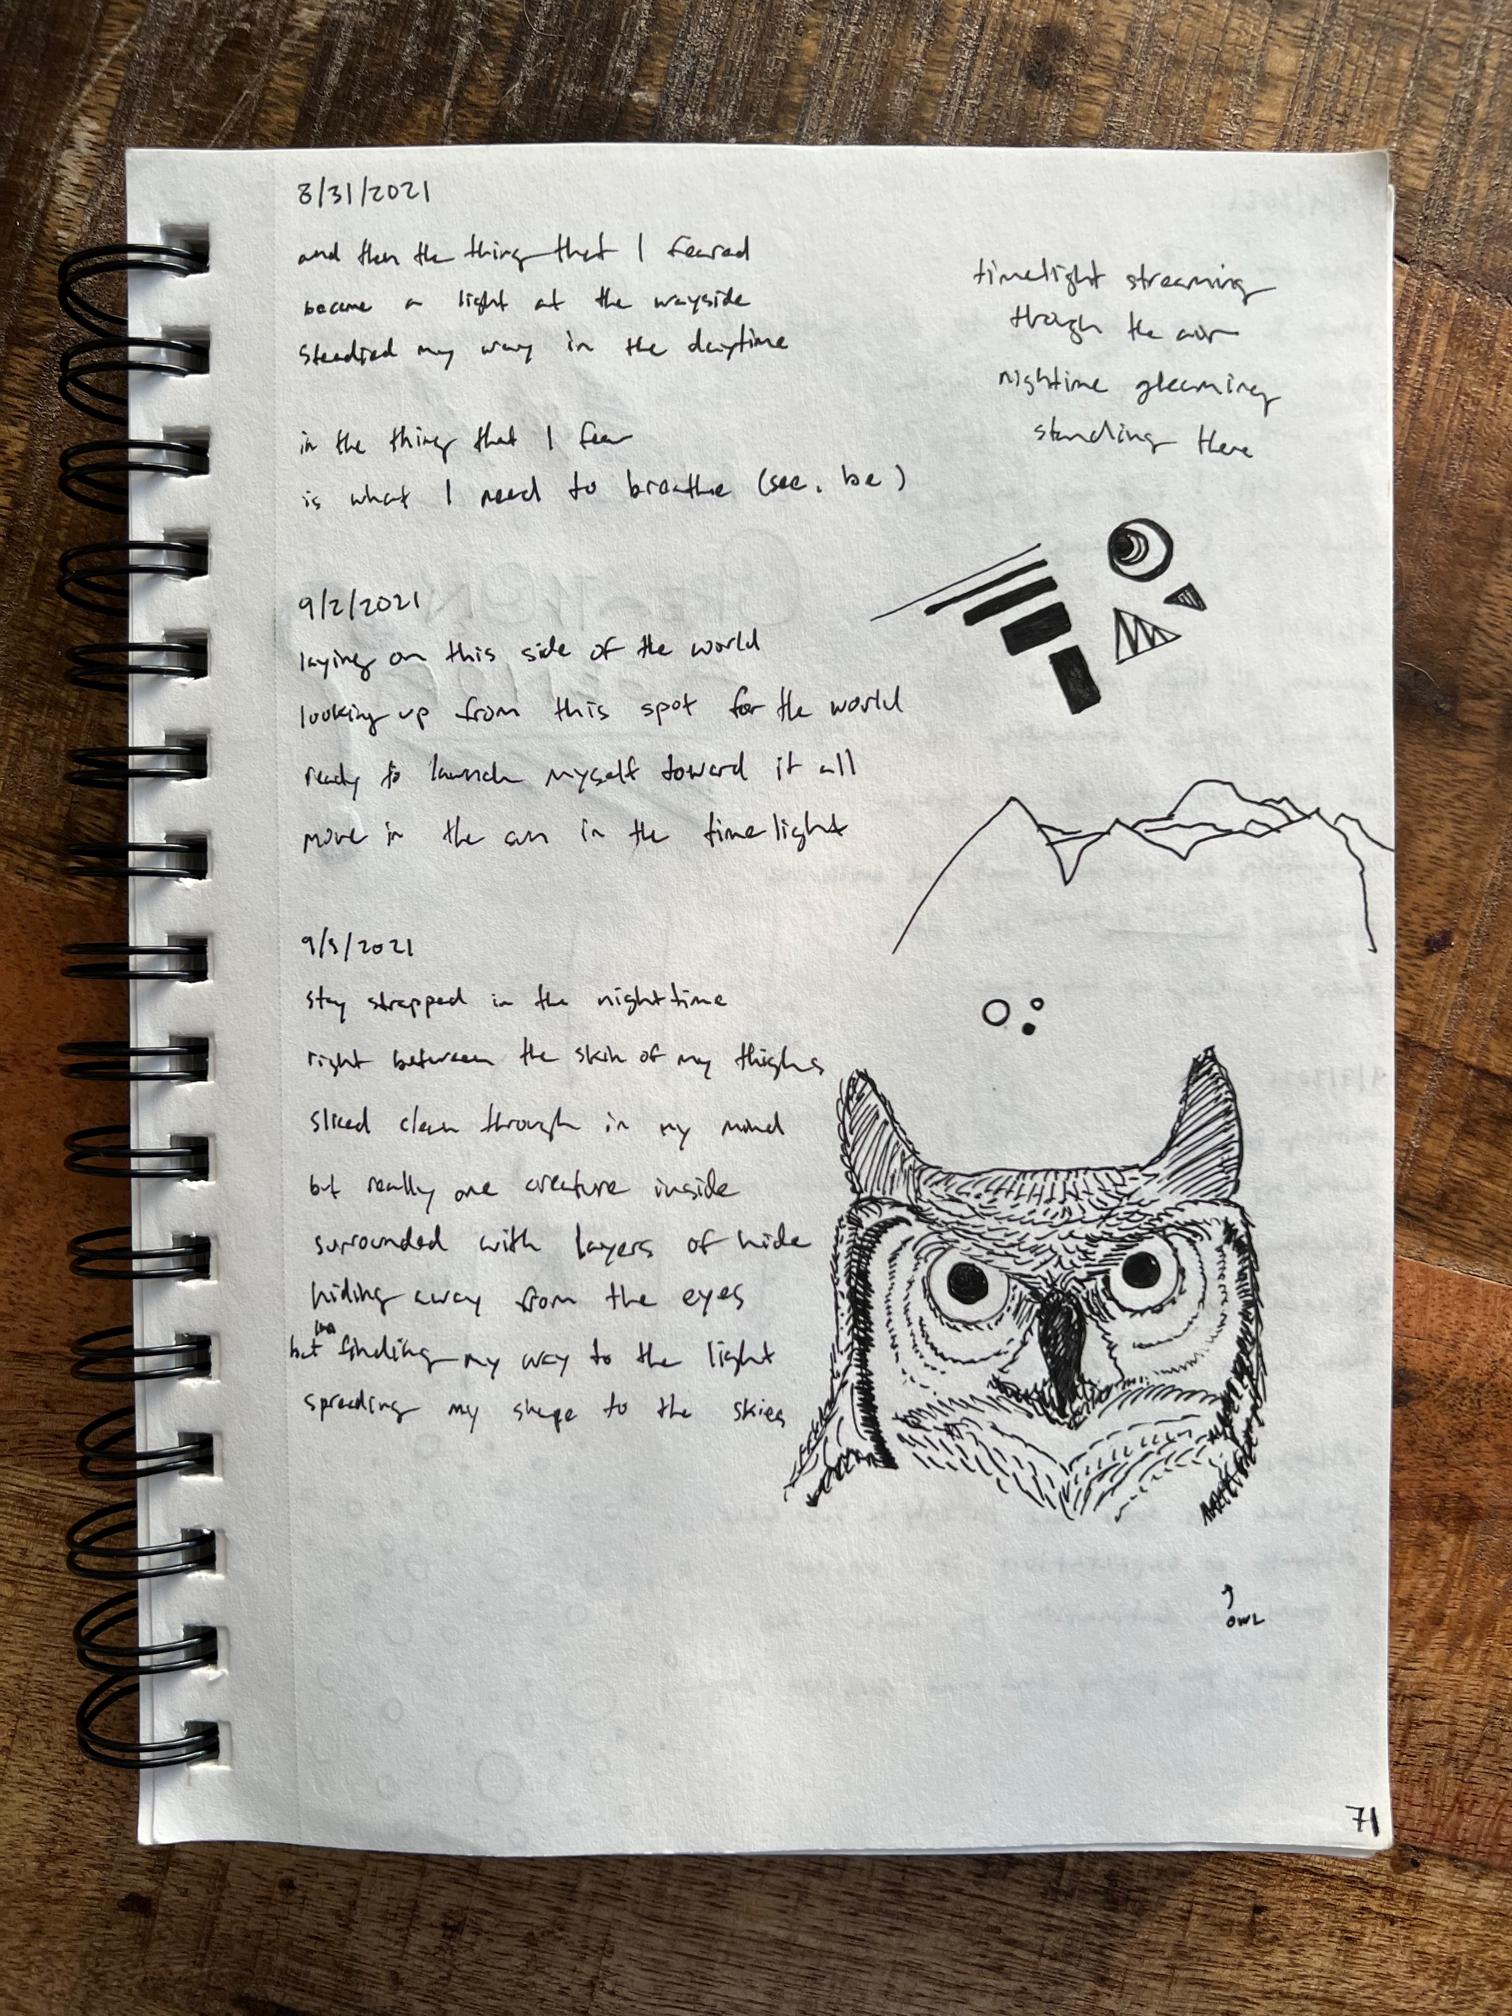 8/31/2021
and then the thing that I feared
became a light at the wayside
steadied my way in the daytime
in the thing that I fear
is what I need to breathe (see, be)
timelight streaming
though the air
nightime gleaming
standing there
9/2/2021
laying on this side of the world
looking up from this spot for the world
ready to launch myself toward it all
move in the sun in the timelight
9/5/2021
stay strapped in the nighttime
right between the skin of my thighs
sliced clean through in my mind
but really one creature inside
surrounded with layers of hide
hiding away from the eyes
but finding my way to the light
spreading my shape to the skies
OWL
71